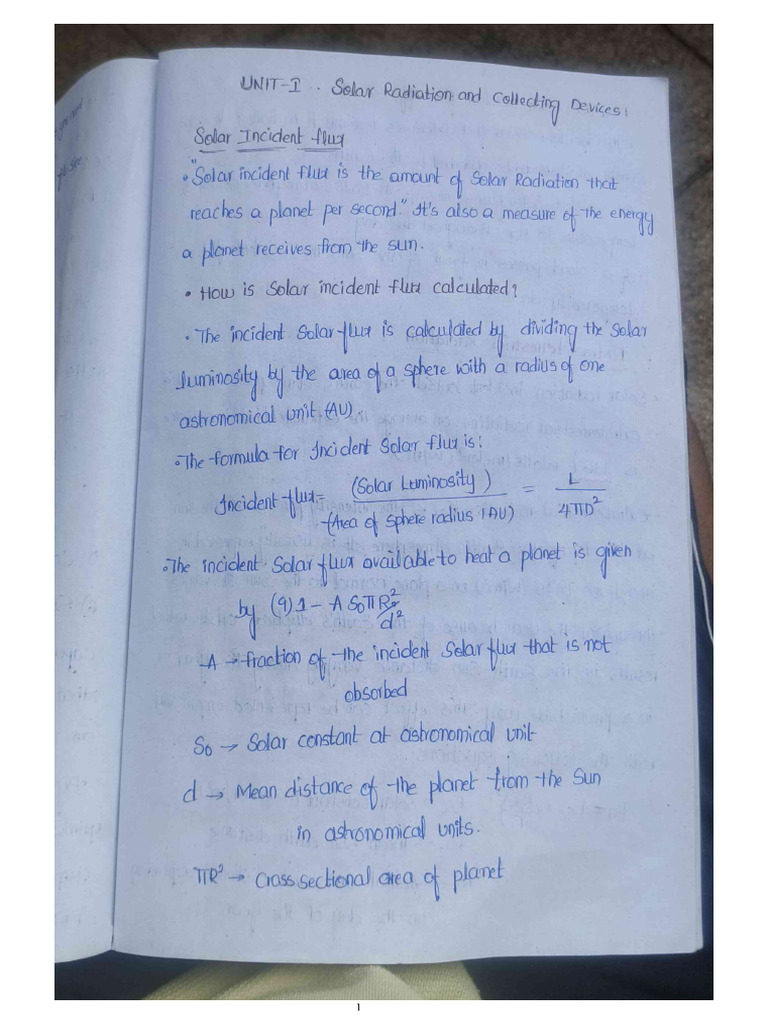 UNIT-I. Solar Radiation and Collecting Devices:
Solar Incident flux
• "Solar incident flux is the amount of Solar Radiation that
reaches a planet per second." It's also a measure of the energy
a planet receives from the sun.
• How is Solar incident flux calculated?
• The incident Solar flux is calculated by dividing the Solar
luminosity by the area of a sphere with a radius of one
astronomical unit (AU).
• The formula for Incident Solar flux is:
Incident flux = (Solar Luminosity) / (Area of sphere radius 1AU) = L / 4πD²
• The incident Solar flux available to heat a planet is given
by (9) 1 - A S₀πR² / d²
A → fraction of the incident Solar flux that is not
absorbed
S₀ → Solar constant at astronomical unit
d → Mean distance of the planet from the Sun
in astronomical units.
πR² → Cross sectional area of planet
1